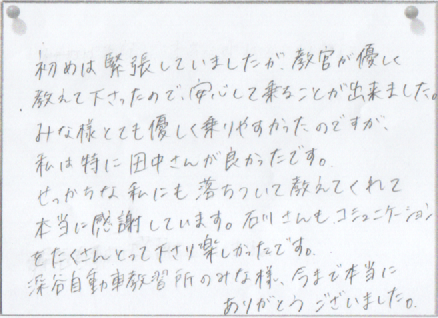 初めは緊張していましたが、教官が優しく
教えて下さったので、安心して乗ることが出来ました。
みな様とても優しく乗りやすかったのですが、
私は特に田中さんが良かったです。
せっかちな私にも落ちついて教えてくれて
本当に感謝しています。石川さんもコミュニケーション
をたくさんとって下さり楽しかったです。
深谷自動車教習所のみな様、今まで本当に
ありがとうございました。